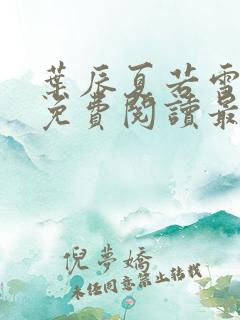 葉辰夏若雪
免費閱讀最
倪夢嬌
未經同意禁止轉載